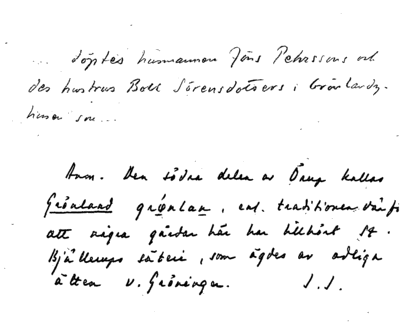 ... döptes husmannen Jöns Pehrssons och
des hustrus Boel Sörensdotters i Grönlandz-
husen son ...
Anm. Den södra delen av Örup kallas
Grönland grønlan, enl. traditionen därför
att några gårdar här har tillhört St.
Bjällerups säteri, som ägdes av adliga
ätten v. Gröningen. S.S.